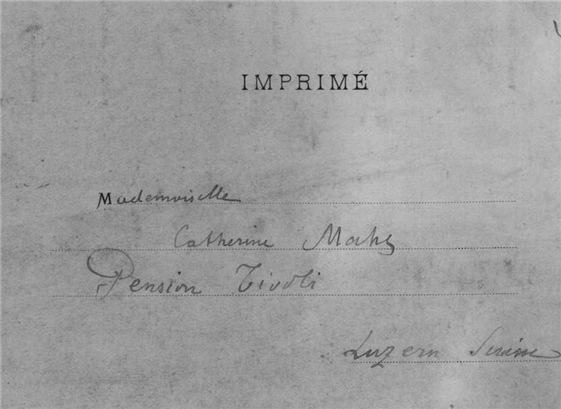 IMPRIMÉ
Mademoiselle
Catherine
Pension Tivoli
Luzern Suisse